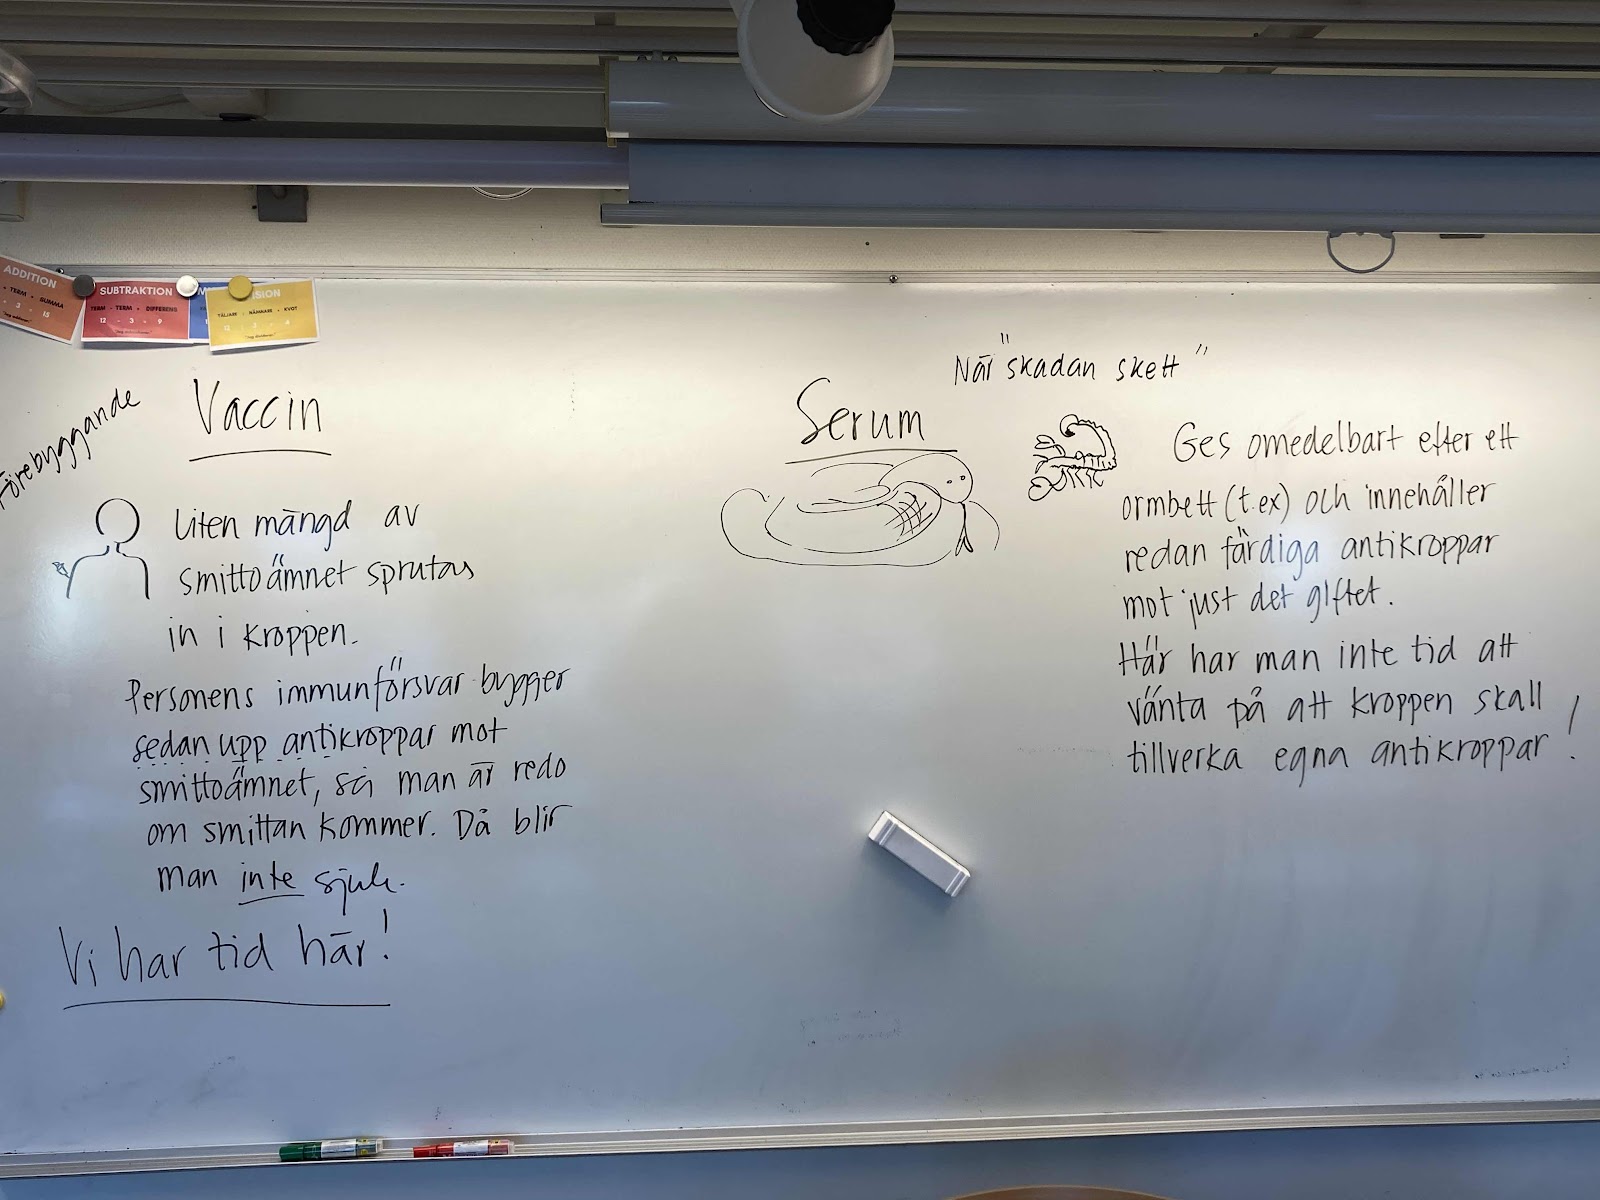 ADDITION
TERM + TERM = SUMMA
SUBTRAKTION
TERM - TERM = DIFFERENS
12 - 3 = 9
M
ISION
TÄLJARE : NÄMNARE = KVOT
12 : 3 = 4
Förebyggande
Vaccin
Liten mängd av
smittoämnet sprutas
in i kroppen.
Personens immunförsvar bygger
sedan upp antikroppar mot
smittoämnet, så man är redo
om smittan kommer. Då blir
man inte sjuk.
Vi har tid här!
När "skadan skett"
Serum
Ges omedelbart efter ett
ormbett (t.ex) och innehåller
redan färdiga antikroppar
mot just det giftet.
Här har man inte tid att
vänta på att kroppen skall
tillverka egna antikroppar!